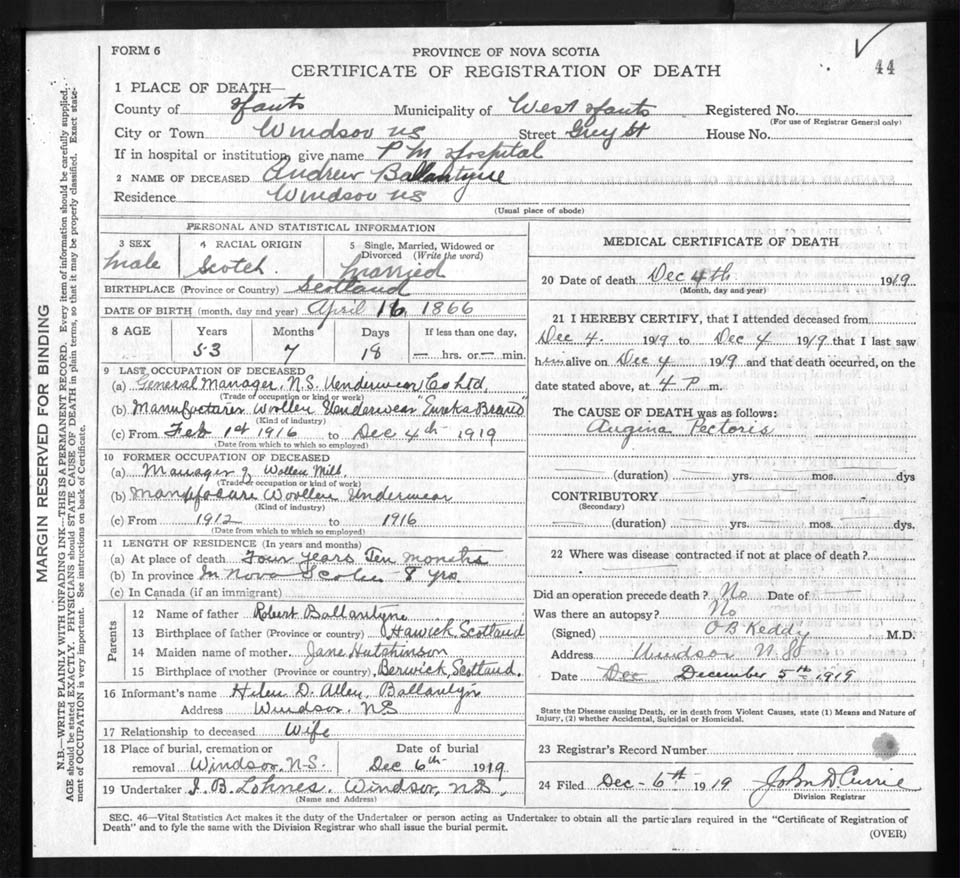 FORM 6
PROVINCE OF NOVA SCOTIA
CERTIFICATE OF REGISTRATION OF DEATH
44
1 PLACE OF DEATH—
County of Hants Municipality of West Hants Registered No.
(For use of Registrar General only)
City or Town Windsor NS Street Grey St House No.
If in hospital or institution, give name P M Hospital
2 NAME OF DECEASED Andrew Ballantyne
Residence Windsor NS
(Usual place of abode)
PERSONAL AND STATISTICAL INFORMATION
3 SEX 4 RACIAL ORIGIN 5 Single, Married, Widowed or Divorced (Write the word)
Male Scotch Married
BIRTHPLACE (Province or Country) Scotland
DATE OF BIRTH (month, day and year) April 16, 1866
8 AGE Years Months Days If less than one day,
53 7 18 — hrs. or — min.
9 LAST OCCUPATION OF DECEASED
(a) General Manager, N.S. Underwear Co Ltd
(Trade of occupation or kind or work)
(b) Manufacturer Woollen Underwear "Eureka Brand"
(Kind of industry)
(c) From Feb 1st 1916 to Dec 4th 1919
(Date from which to which so employed)
10 FORMER OCCUPATION OF DECEASED
(a) Manager of Wollen Mill
(Trade or occupation or kind of work)
(b) Manufacture Woollen Underwear
(Kind of industry)
(c) From 1912 to 1916
(Date from which to which so employed)
11 LENGTH OF RESIDENCE (In years and months)
(a) At place of death Four Years Ten months
(b) In province In Nova Scotia 8 yrs
(c) In Canada (if an immigrant)
Parents
12 Name of father Robert Ballantyne
13 Birthplace of father (Province or country) Hawick Scotland
14 Maiden name of mother Jane Hutchinson
15 Birthplace of mother (Province or country) Berwick Scotland.
16 Informant's name Helen D. Allen Ballantyn
Address Windsor, NS
17 Relationship to deceased Wife
18 Place of burial, cremation or removal Windsor, N.S. Date of burial Dec 6th 1919
19 Undertaker J. B. Lohnes. Windsor, N.S.
(Name and Address)
MEDICAL CERTIFICATE OF DEATH
20 Date of death Dec 4th 1919
(Month, day and year)
21 I HEREBY CERTIFY, that I attended deceased from
Dec 4. 1919 to Dec 4 1919 that I last saw
him alive on Dec 4 1919 and that death occurred, on the
date stated above, at 4 P m.
The CAUSE OF DEATH was as follows:
Angina Pectoris
(duration) yrs. mos. dys
CONTRIBUTORY
(Secondary)
(duration) yrs. mos. dys.
22 Where was disease contracted if not at place of death?
Did an operation precede death? No Date of
Was there an autopsy? No
(Signed) O B Keddy M.D.
Address Windsor N.S
Date Dec December 5th 1919
State the Disease causing Death, or in death from Violent Causes, state (1) Means and Nature of
Injury, (2) whether Accidental, Suicidal or Homicidal.
23 Registrar's Record Number
24 Filed Dec - 6th 1919 John D Currie
Division Registrar
SEC. 46—Vital Statistics Act makes it the duty of the Undertaker or person acting as Undertaker to obtain all the particulars required in the "Certificate of Registration of
Death" and to fyle the same with the Division Registrar who shall issue the burial permit.
(OVER)
MARGIN RESERVED FOR BINDING
N.B.—WRITE PLAINLY WITH UNFADING INK—THIS IS A PERMANENT RECORD. Every item of information should be carefully supplied.
AGE should be stated EXACTLY. PHYSICIANS should STATE CAUSE OF DEATH in plain terms, so that it may be properly classified. Exact state-
ment of OCCUPATION is very important. See instructions on back of Certificate.